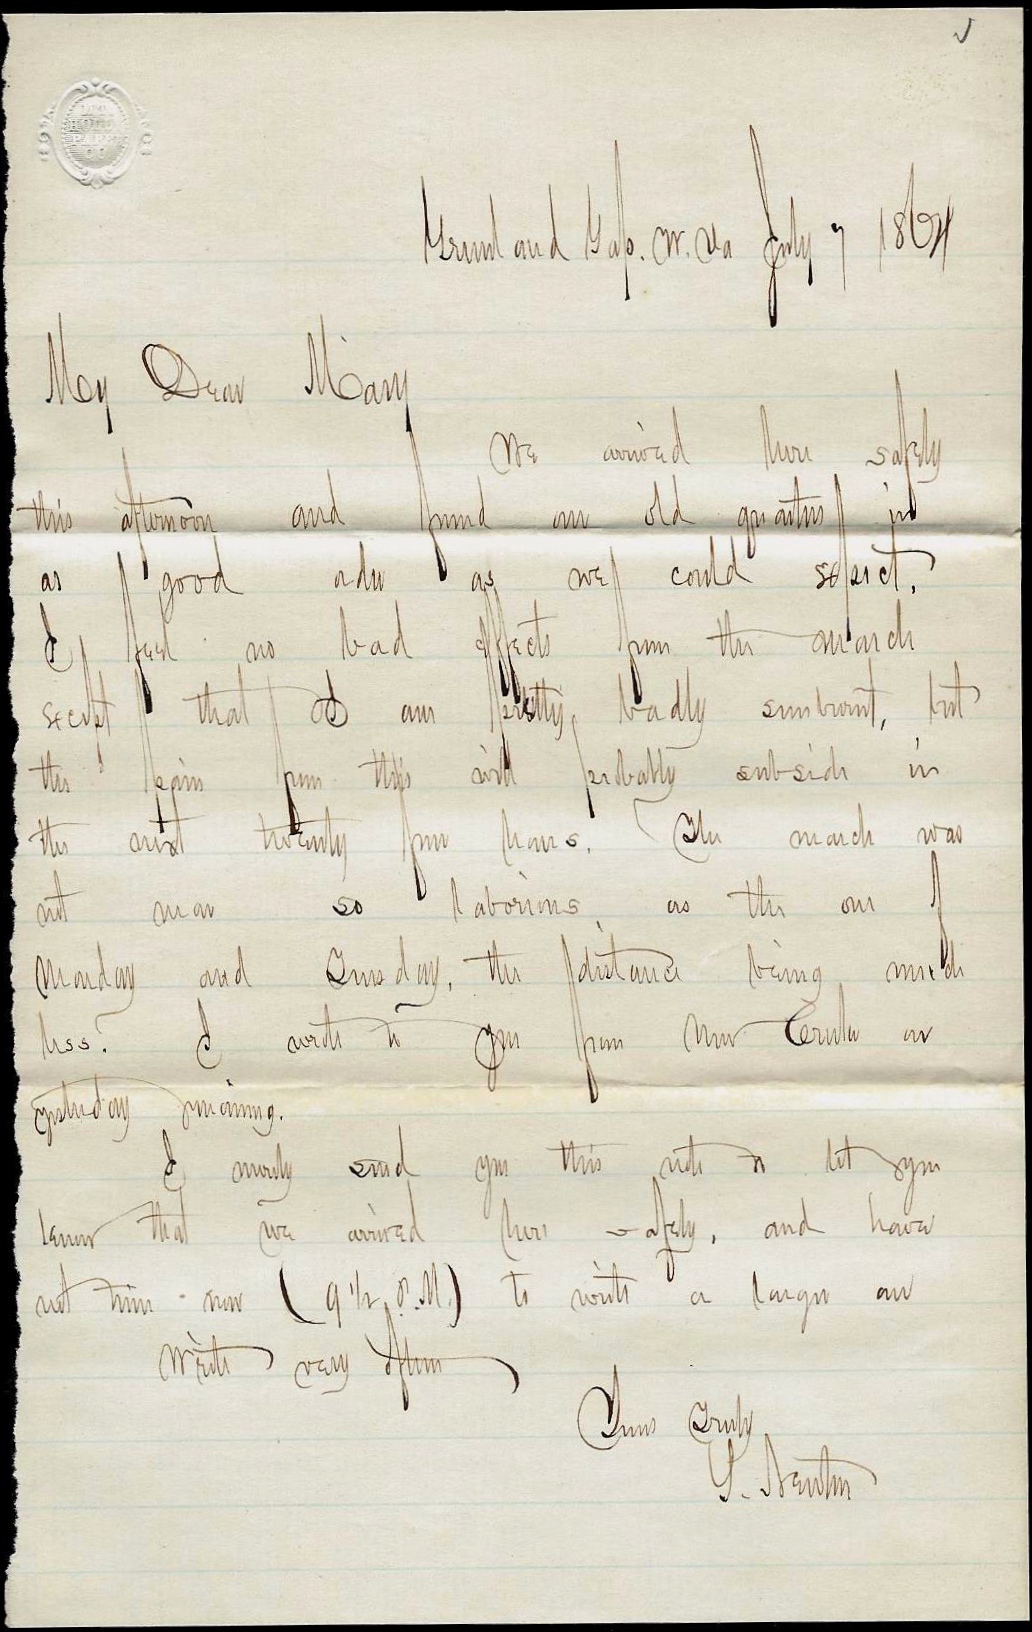 Greenland Gap. W. Va July 7 1864
My Dear Mary
We arrived here safely
this afternoon and found our old quarters in
as good order as we could expect.
I feel no bad effects from the march
except that I am pretty badly sunburnt, but
the pain from this will probably subside in
the next twenty four hours. The march was
not near so laborious as the one of
Monday and Tuesday, the distance being much
less. I wrote to you from New Creek on
yesterday morning.
I merely send you this note to let you
know that we arrived here safely, and have
not time now (9 1/2 P.M.) to write a longer one
Write very often
Yours Truly
S. Newton